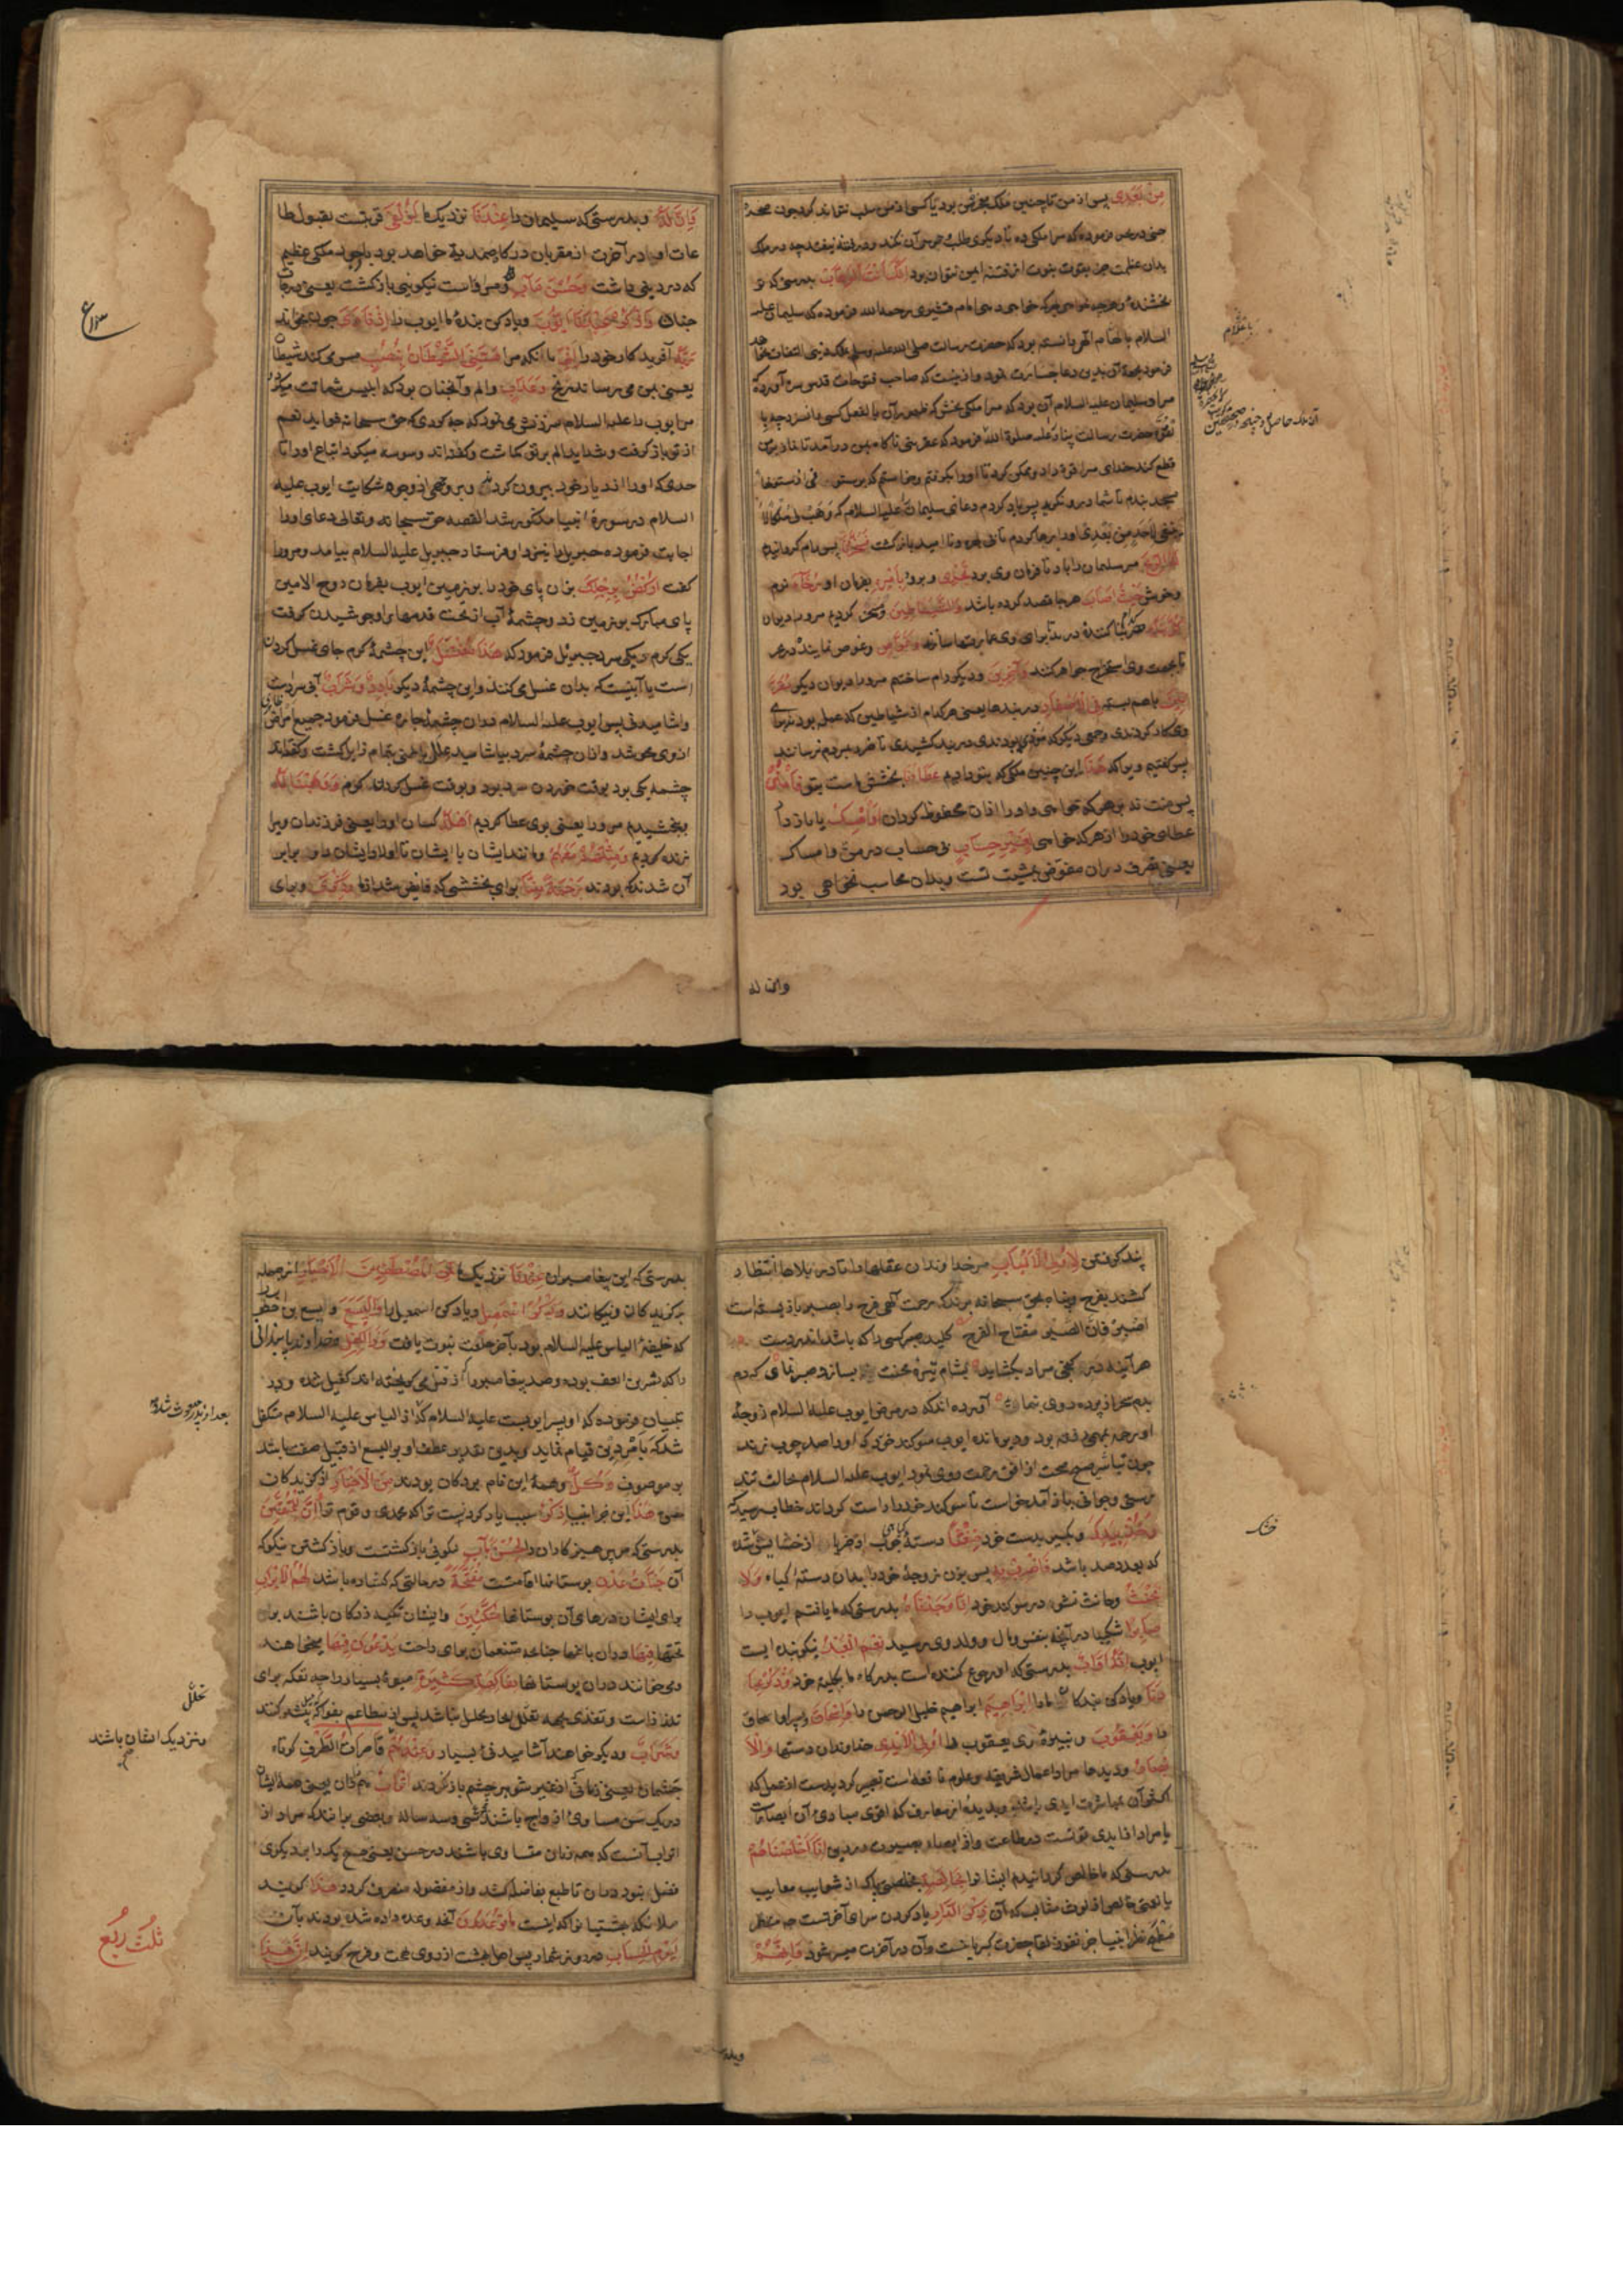 مِنْ بَعْدِی پس از من تا چنین ملک معجزهٔ من بود یا کسی از من سلب نتواند کرد چون صخرهٔ
جنی در عین فرموده که مرا ملکی ده تا دیگری طلب حرص آن نکند و در فتنه نیفتد چه در ملک
بدان عظمت جز بقوت نبوت از فتنه ایمن نتوان بود اِنَّکَ اَنْتَ الْوَهَّابُ بدرستی که تو
بخشندهٔ هر چه خواهی بهر که خواهی و امام قشیری رحمه الله فرموده که سلیمان علیه
السلام بالهام الهی دانسته بود که حضرت رسالت صلی الله علیه وسلم بملک دنیی التفات نخواهد
فرمود بجهة آن بدین دعا جسارت نمود و از نیست که صاحب فتوحات قدس سره آورده که
مراد سلیمان علیه السلام آن بود که مرا ملکی بخش که ظهور آن بالفعل کسی را نسزد چه با
حضرت رسالت پناه علیه صلوة الله فرمود که عفریتی ناگاه بمن درآمد تا نماز بر من
قطع کند خدای مرا قوة داد و ممکن کرد تا او را بگرفتم و خواستم که بر ستونی از ستونها
مسجد بندم تا شما درو نگرید پس یاد کردم دعای سلیمان علیه السلام که وَهَبْ لِی مُلْکًا لَا
یَنْبَغِی لِاَحَدٍ مِنْ بَعْدِی او را رها کردم تا نا امید بازگشت فَسَخَّرْنَا پس رام گردانیدیم
لَهُ الرِّیحَ مر سلیمان را باد تا فرمان وی برد تَجْرِی و برود بِاَمْرِهِ بفرمان او رُخَاءً نرم
و خوش حَیْثُ اَصَابَ هر جا قصد کرده باشد وَالشَّیَاطِینَ و مسخر کردیم مرو را دیوان
کُلَّ بَنَّاءٍ هر بنا کننده در بر تا برای وی عمارتها سازند وَغَوَّاصٍ و غوص نماینده در بحر
تا بجهت وی استخراج جواهر کنند وَآخَرِینَ و دیگر رام ساختیم مرو را دیوان دیگر مُقَرَّ
نِینَ باهم بسته فِی الْاَصْفَادِ در بندها یعنی هر کدام از شیاطین که عمله بودند برای
وی کار کردندی و جمعی دیگر که موذی بودندی در بند کشیدی تا ضرر بمردم نرسانند
پس گفتیم ویرا که هَذَا این چنین ملکی که بتو دادیم عَطَاؤُنَا بخشش ماست بتو فَامْنُنْ
پس منت نه بر هر که خواهی و او را از آن محظوظ گردان اَوْ اَمْسِکْ یا باز دار
عطای خود را از هر که خواهی بِغَیْرِ حِسَابٍ بی حساب در من و امساک
یعنی تصرف در آن مفوض بمشیت تست و بدان محاسب نخواهی بود
وان له
وَاِنَّ لَهُ و بدرستی که سلیمان را عِنْدَنَا نزدیک ما لَزُلْفَی قربتست بقبول طا
عات او را در آخرت از مقربان درگاه صمدیة خواهد بود باوجود ملکی عظیم
که در دنیی داشت وَحُسْنَ مَآبٍ و مر او راست نیکویی بازگشت یعنی درجات
جنان وَاذْکُرْ عَبْدَنَا اَیُّوبَ و یاد کن بندهٔ ما ایوب را اِذْ نَادَی چون بخواند
رَبَّهُ آفریدگار خود را اَنِّی بآنکه مرا مَسَّنِیَ الشَّیْطَانُ بِنُصْبٍ مس میکند شیطان
یعنی بمن میرساند رنج وَعَذَابٍ و الم و آنچنان بود که ابلیس شماتت میکرد
مر ایوب را علیه السلام سرزنش می نمود که چه کردی که حق سبحانه فواید نعم
از تو بازگرفت و شداید الم بر تو گماشت و گفته اند وسوسه میکرد اتباع او را تا
حدی که او را از دیار خود بیرون کردند و برخی از وجوه شکایت ایوب علیه
السلام در سورهٔ انبیا مذکور شد القصه حق سبحانه وتعالی دعای او را
اجابت فرموده جبریل را بنزد او فرستاد جبریل علیه السلام بیامد و مرو را
گفت اُرْکُضْ بِرِجْلِکَ بزن پای خود را بر زمین ایوب بفرمان روح الامین
پای مبارک بر زمین زد و چشمهٔ آب از تحت قدمهای او جوشیدن گرفت
یکی گرم و یکی سرد جبریل فرمود که هَذَا مُغْتَسَلٌ این چشمهٔ گرم جای غسل کردن
است یا آبیست که بدان غسل می کنند و این چشمهٔ دیگر بَارِدٌ وَشَرَابٌ آبی سردست
و اشامیدنی پس ایوب علیه السلام در آن چشمهٔ حاره غسل فرمود جمیع امراض ظاهری
از وی محو شد و از آن چشمهٔ سرد بیاشامید علل باطنی بتمام زایل گشت و گفته اند
چشمه یکی بود بوقت خوردن سرد بود و بوقت غسل کردن گرم وَوَهَبْنَا لَهُ
و بخشیدیم مرو را یعنی بوی عطا کردیم اَهْلَهُ کسان او را یعنی فرزندان ویرا
زنده کردیم وَمِثْلَهُمْ مَعَهُمْ و مانند ایشان با ایشان تا اولاد ایشان دو برابر
آن شدند که بودند رَحْمَةً مِنَّا برای بخششی که فایض شد از ما وَذِکْرَی و برای
پند گرفتن لِاُولِی الْاَلْبَابِ مر خداوندان عقلها را تا در بلاها انتظار
کشند بفرج و پناه بحق سبحانه برند که رحمت الهی فرج را بصبر باز بسته است
اصبر فان الصبر مفتاح الفرج کلید صبر کسی را که باشد اندر دست
هر آینه در گنج مراد بگشاید بشام تیرهٔ محنت بساز و صبر نمای که دم
بدم سحر از پرده روی بنماید آورده اند که در مرض ایوب علیه السلام زوجهٔ
او رحمه بمهمی رفته بود و دیر مانده ایوب سوگند خورد که او را صد چوب بزند
چون تباشیر صبح صحت از افق رحمت روی نمود ایوب علیه السلام بحالت تند
رستی و جوانی باز آمد خواست تا سوگند خود را راست گرداند خطاب رسید که
وَخُذْ بِیَدِکَ و بگیر بدست خود ضِغْثًا دستهٔ چوب از خرما از خشک شده
که بعدد صد باشد فَاضْرِبْ بِهِ پس بزن زوجهٔ خود را بدان دستهٔ گیاه وَلَا
تَحْنَثْ و حانث نشو در سوگند خود اِنَّا وَجَدْنَاهُ بدرستی که ما یافتیم ایوب را
صَابِرًا شکیبا در آنچه بنفس و مال و ولد وی رسید نِعْمَ الْعَبْدُ نیکو بنده ایست
ایوب اِنَّهُ اَوَّابٌ بدرستی که او رجوع کننده است بدرگاه ما بکلیهٔ خود وَاذْکُرْ عِبَا
دَنَا و یاد کن بندگان ما را اِبْرَاهِیمَ ابراهیم خلیل الرحمن را وَاِسْحَاقَ و پسر او اسحاق
را وَیَعْقُوبَ و نبیرهٔ وی یعقوب را اُولِی الْاَیْدِی خداوندان دستها وَالْاَ
بْصَارِ و دیدها مراد اعمال شریفه و علوم نافعه است تعبیر کرد بدست از عمل که
اکثر آن بمباشرت ایدی باشد و بدیده از معارف که اقوی مبادی آن ابصارست
یا مراد از ایدی قوتست در طاعت و از ابصار بصیرت در دین اِنَّا اَخْلَصْنَاهُمْ
بدرستی که ما خالص گردانیدیم ایشان را بِخَالِصَةٍ بخصلتی پاک از شوایب معایب
که آن ذِکْرَی الدَّارِ یاد کردن سرای آخرتست چه منظر
مطمح نظر انبیا جز بفوز لقا حضرت کبریا نیست و آن در آخرت میسر شود وَاِنَّهُمْ
بدرستی که این پیغامبران عِنْدَنَا نزدیک ما لَمِنَ الْمُصْطَفَیْنَ الْاَخْیَارِ از جمله
برگزیدگان و نیکانند وَاذْکُرْ اِسْمَعِیلَ و یاد کن اسمعیل را وَالْیَسَعَ و الیسع بن اخطوب
که خلیفهٔ الیاس علیه السلام بود بآخر خلعت نبوت یافت وَذَا الْکِفْلِ و خداوند پایندانی
را که بشر بن ایوب بوده و صد پیغامبر را که از قتل می گریخته اند کفیل شده و در
تبیان فرموده که او پسر ایوبست علیه السلام که از الیاس علیه السلام متکفل
شد که بامر دین قیام نماید و بدین تقدیر عطف او بر الیسع از قبیل صفت باشد
بر موصوف وَکُلٌّ و همهٔ این نام بردگان بودند مِنَ الْاَخْیَارِ از گزیدگان
حق هَذَا این خبر انبیا ذِکْرٌ سبب یاد کردنست ترا که محمدی و قوم ترا وَاِنَّ لِلْمُتَّقِینَ
بدرستی که مر پرهیزگاران را لَحُسْنَ مَآبٍ نکویی بازگشتست و بازگشتن نیکو که
آن جَنَّاتِ عَدْنٍ بوستانها اقامتست مُفَتَّحَةً در حالتی که گشاده باشد لَهُمُ الْاَبْوَابُ
برای ایشان درهای آن بوستانها مُتَّکِئِینَ و ایشان تکیه زدگان باشند بر
تختها فِیهَا در آن باغها چنانچه متنعمان برای راحت یَدْعُونَ فِیهَا میخواهند
و می خوانند در آن بوستانها بِفَاکِهَةٍ کَثِیرَةٍ میوهٔ بسیار و آنچه تفکه برای
تلذذ است و تغذی بجهت تحلل و آنجا تحلل نباشد پس از مطاعم بفواکه بسنده کنند
وَشَرَابٍ و دیگر خواهند آشامیدنی بسیار وَعِنْدَهُمْ قَاصِرَاتُ الطَّرْفِ کوتاه
چشمان یعنی زنانی که از غیر شوهر چشم باز گیرند اَتْرَابٌ همزادان یعنی همه ایشان
در یک سن مساوی ازواج باشند سی و سه ساله و بعضی برانند که مراد از
اتراب آنست که همه زنان مساوی باشند در حسن یعنی هیچ یک را بر دیگری
فضل نبود در آن تا طبع بفاضله کشد و از مفضوله منصرف گردد هَذَا گویند
ملائکه بهشتیان را که اینست مَا تُوعَدُونَ آنچه وعده داده شده بودند بآن
لِیَوْمِ الْحِسَابِ در روز شمار پس اهل بهشت از روی بهجت و فرح گویند اِنَّ هَذَا
بعد از پدر مبعوث شده
تحلل
و نزدیک ایشان باشند
ثلث ربع
خشک